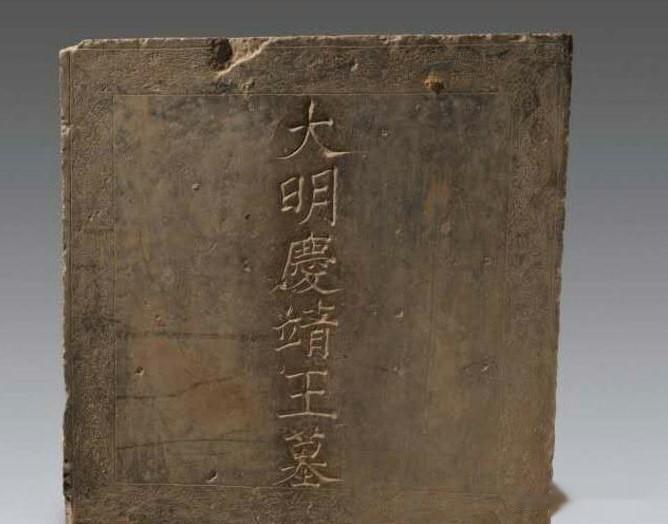 大明慶靖王墓